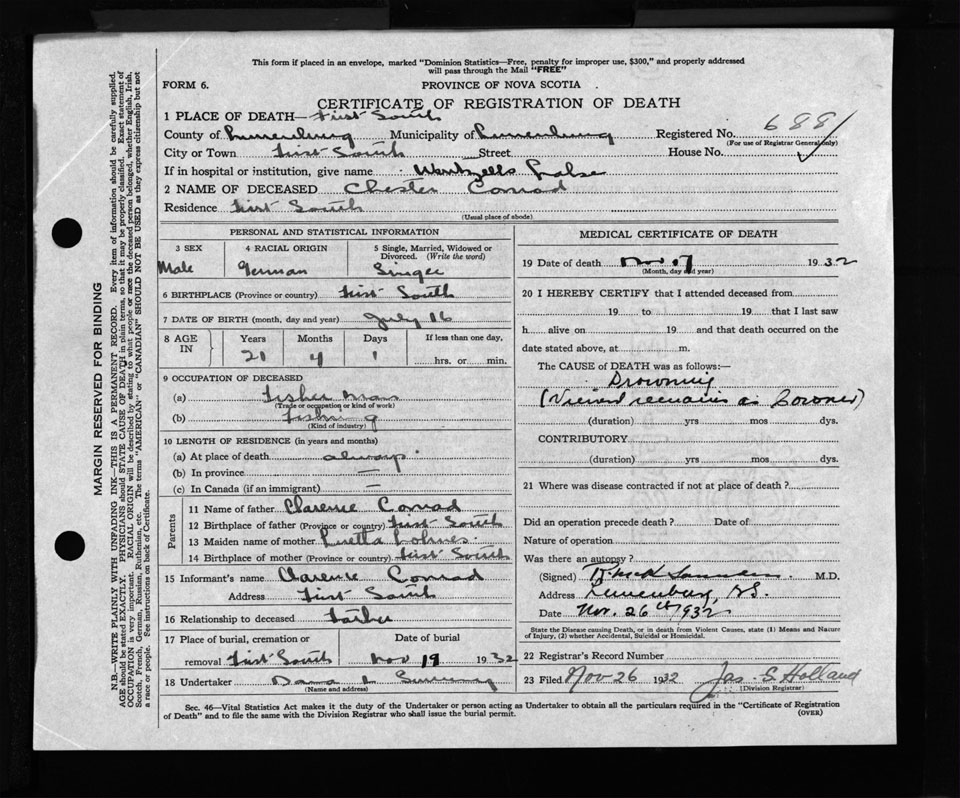 This form if placed in an envelope, marked "Dominion Statistics—Free, penalty for improper use, $300," and properly addressed
will pass through the Mail "FREE"
FORM 6. PROVINCE OF NOVA SCOTIA
CERTIFICATE OF REGISTRATION OF DEATH
1 PLACE OF DEATH— First South
County of Lunenburg Municipality of Lunenburg Registered No. 6881
(For use of Registrar General only)
City or Town First South Street House No.
If in hospital or institution, give name
2 NAME OF DECEASED Chester Conrad
Residence First South
(Usual place of abode)
PERSONAL AND STATISTICAL INFORMATION
3 SEX 4 RACIAL ORIGIN 5 Single, Married, Widowed or
Divorced. (Write the word)
Male German Single
6 BIRTHPLACE (Province or country) First South
7 DATE OF BIRTH (month, day and year) July 16
8 AGE IN Years Months Days If less than one day,
21 4 1 hrs. or min.
9 OCCUPATION OF DECEASED
(a) Fisherman
(Trade or occupation or kind of work)
(b) Fishing
(Kind of industry)
10 LENGTH OF RESIDENCE (in years and months)
(a) At place of death always
(b) In province —
(c) In Canada (if an immigrant) —
Parents
11 Name of father Clarence Conrad
12 Birthplace of father (Province or country) First South
13 Maiden name of mother
14 Birthplace of mother (Province or country) First South
15 Informant's name Clarence Conrad
Address First South
16 Relationship to deceased Father
17 Place of burial, cremation or Date of burial
removal First South Nov 19 1932
18 Undertaker
(Name and address)
MEDICAL CERTIFICATE OF DEATH
19 Date of death Nov 17 1932
(Month, day and year)
20 I HEREBY CERTIFY that I attended deceased from
19 to 19 that I last saw
h alive on 19 and that death occurred on the
date stated above, at m.
The CAUSE of DEATH was as follows:—
Drowning
(Viewed remains as Coroner)
(duration) yrs mos dys.
CONTRIBUTORY
(duration) yrs mos dys.
21 Where was disease contracted if not at place of death?
Did an operation precede death? Date of
Nature of operation
Was there an autopsy?
(Signed) M.D.
Address Lunenburg, N.S.
Date Nov. 26th 1932
State the Disease causing Death, or in death from Violent Causes, state (1) Means and Nature
of Injury, (2) whether Accidental, Suicidal or Homicidal.
22 Registrar's Record Number
23 Filed Nov 26 1932 Jas. S. Holland
(Division Registrar)
Sec. 46—Vital Statistics Act makes it the duty of the Undertaker or person acting as Undertaker to obtain all the particulars required in the "Certificate of Registration
of Death" and to file the same with the Division Registrar who shall issue the burial permit. (OVER)
MARGIN RESERVED FOR BINDING
N.B.—WRITE PLAINLY WITH UNFADING INK—THIS IS A PERMANENT RECORD. Every item of information should be carefully supplied.
AGE should be stated EXACTLY. PHYSICIANS should STATE CAUSE OF DEATH in plain terms, so that it may be properly classified. Exact statement of
OCCUPATION is very important. RACIAL ORIGIN will be described by stating to what people or race the deceased person belonged, whether English, Irish,
Scotch, French, German, Russian, Ruthenian, etc. The terms "AMERICAN" or "CANADIAN" SHOULD NOT BE USED as they express citizenship but not
a race or people. See instructions on back of Certificate.